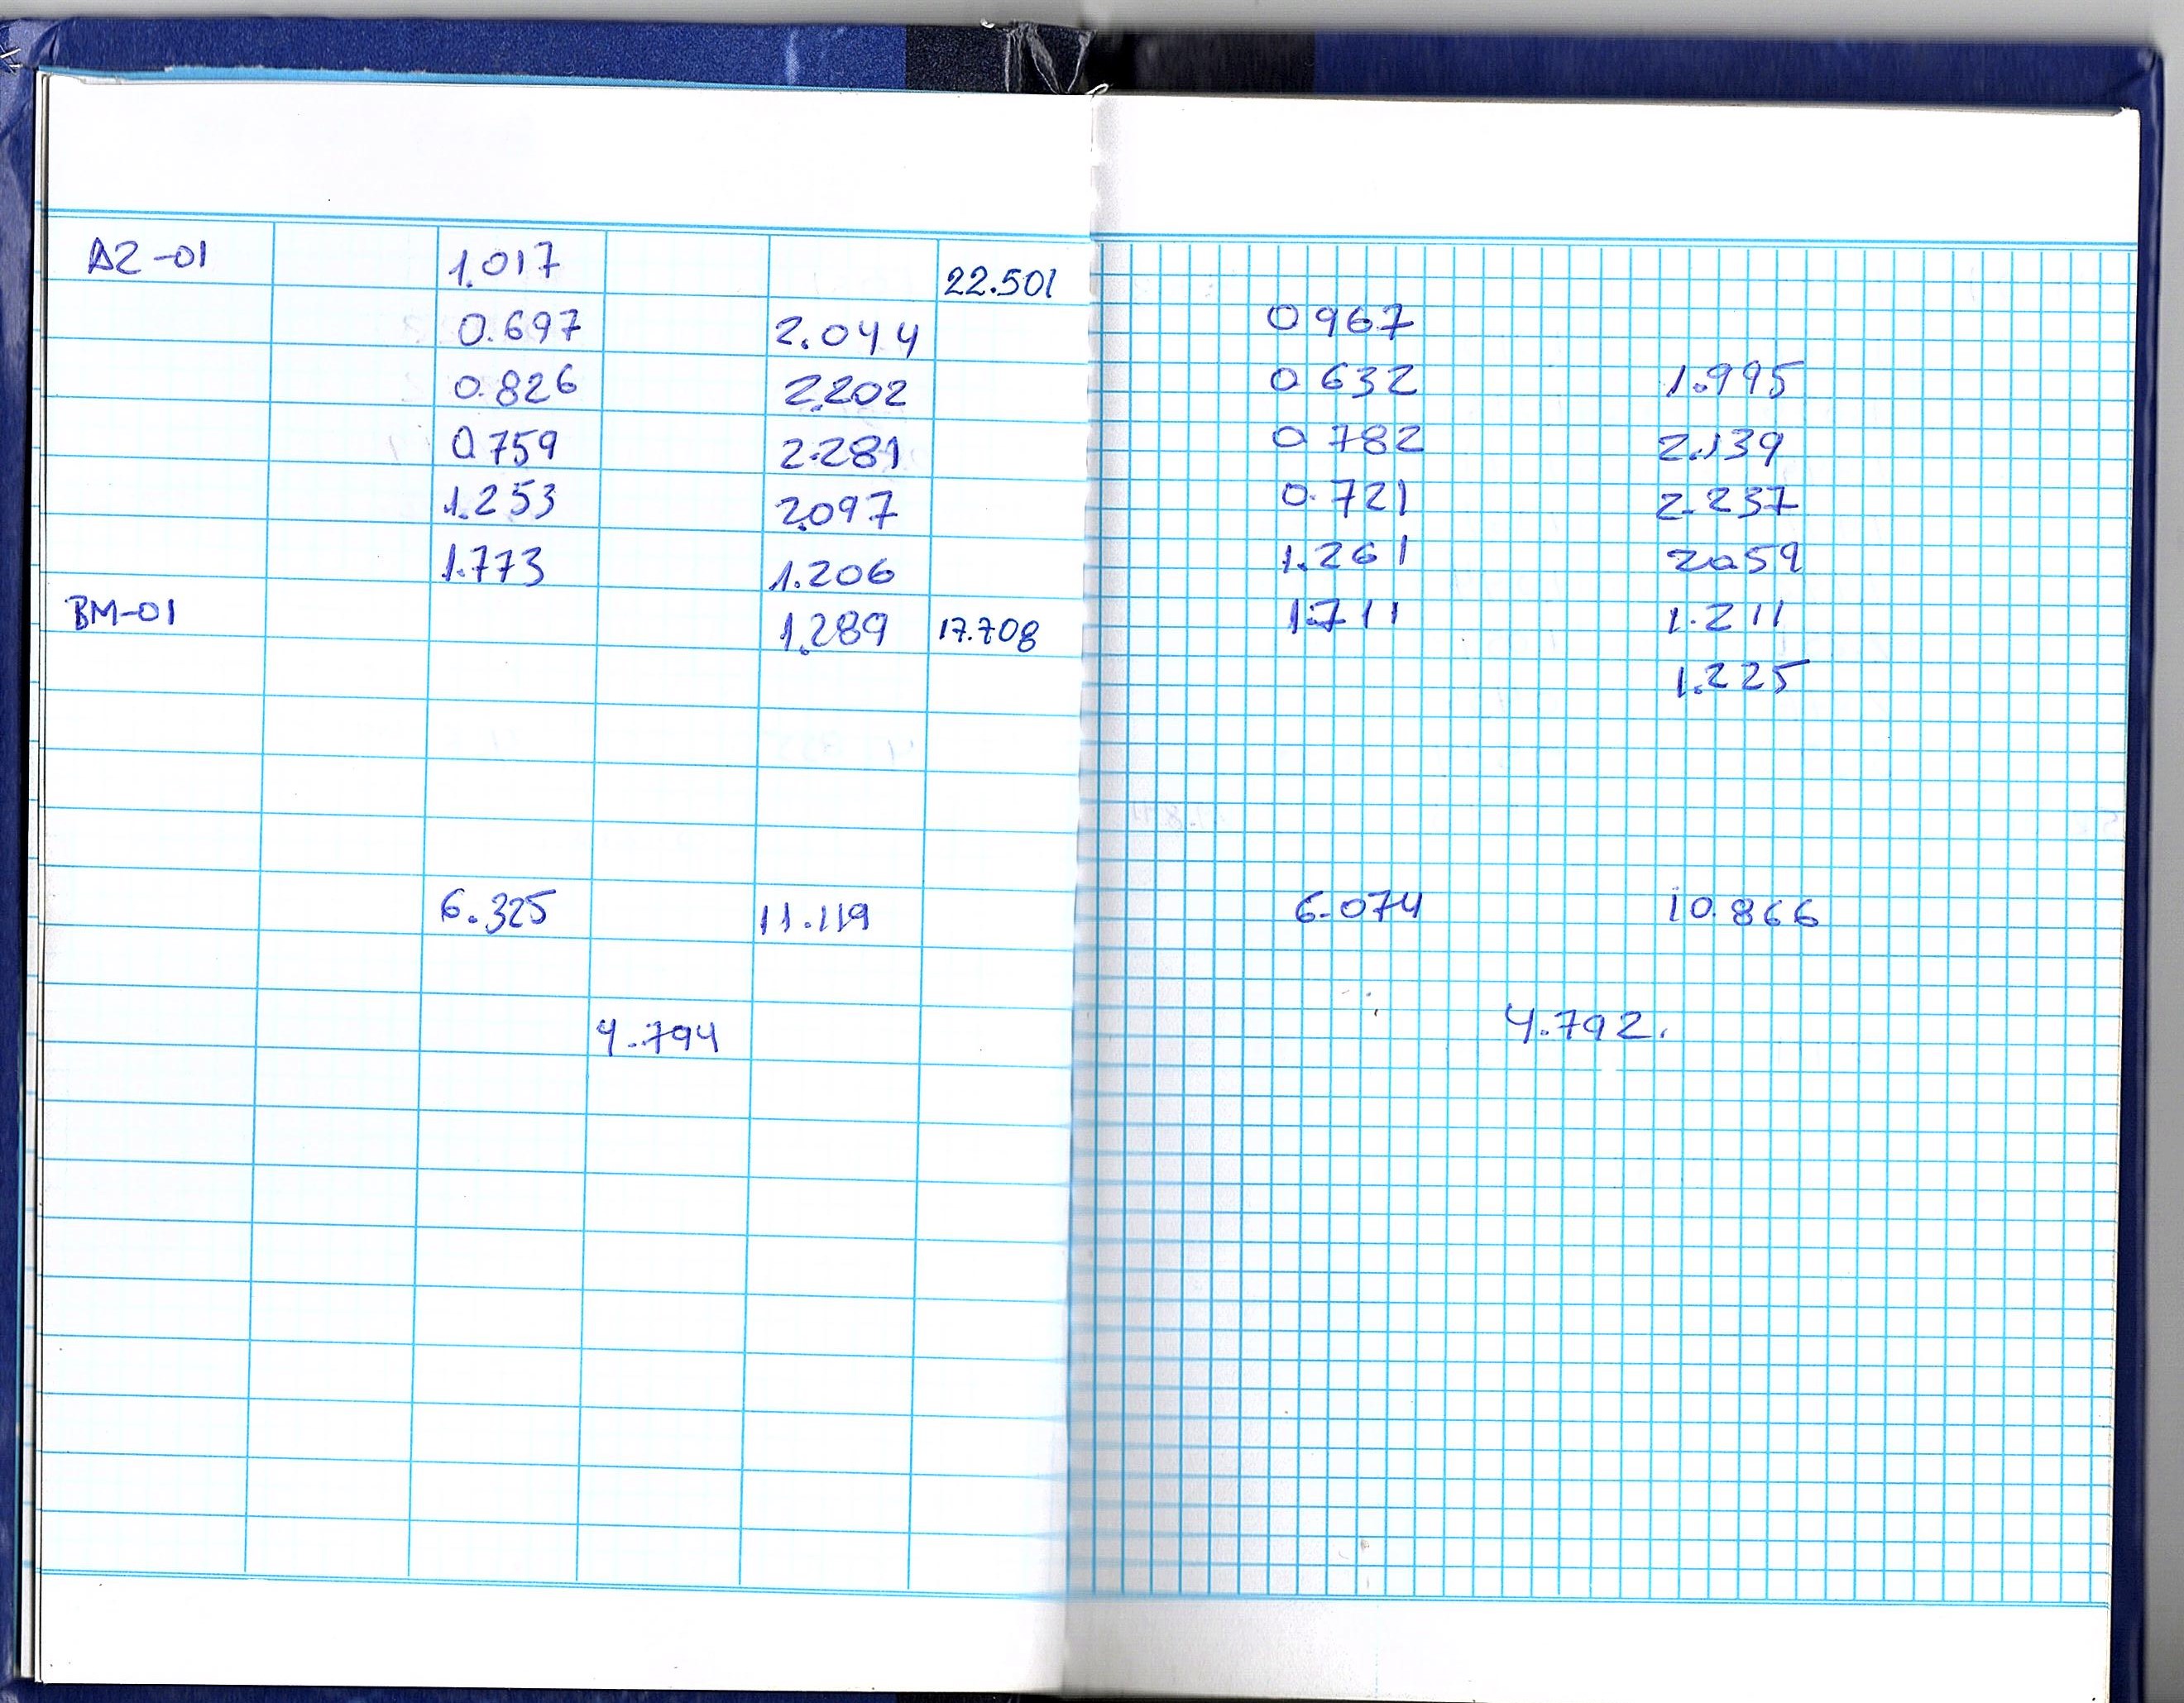 AZ-01 1.017 22.501
0.697 2.044
0.826 2.202
0.759 2.281
1.253 2.097
1.773 1.206
BM-01 1.289 17.708
6.325 11.119
4.794
0 967
0 632 1.995
0 782 2.139
0.721 2.237
1.261 2.059
1.711 1.211
1.225
6.074 10.866
4.792.